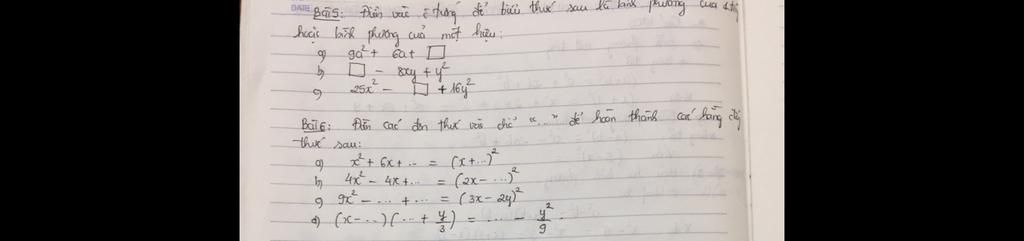 Bài 5: Điền vào ô trống để biểu thức sau là bình phương của 1 tổng
hoặc bình phương của một hiệu:
a) 9a² + 6a + □
b) □ - 8xy + y²
c) 25x² - □ + 16y²
Bài 6: Điền các đơn thức vào chỗ "..." để hoàn thành các hằng đẳng
thức sau:
a) x² + 6x + .. = (x+...)²
b) 4x² - 4x + ... = (2x - ...)²
c) 9x² - ... + ... = (3x - 2y)²
d) (x - ...)(... + y/3) = ... - y²/9.